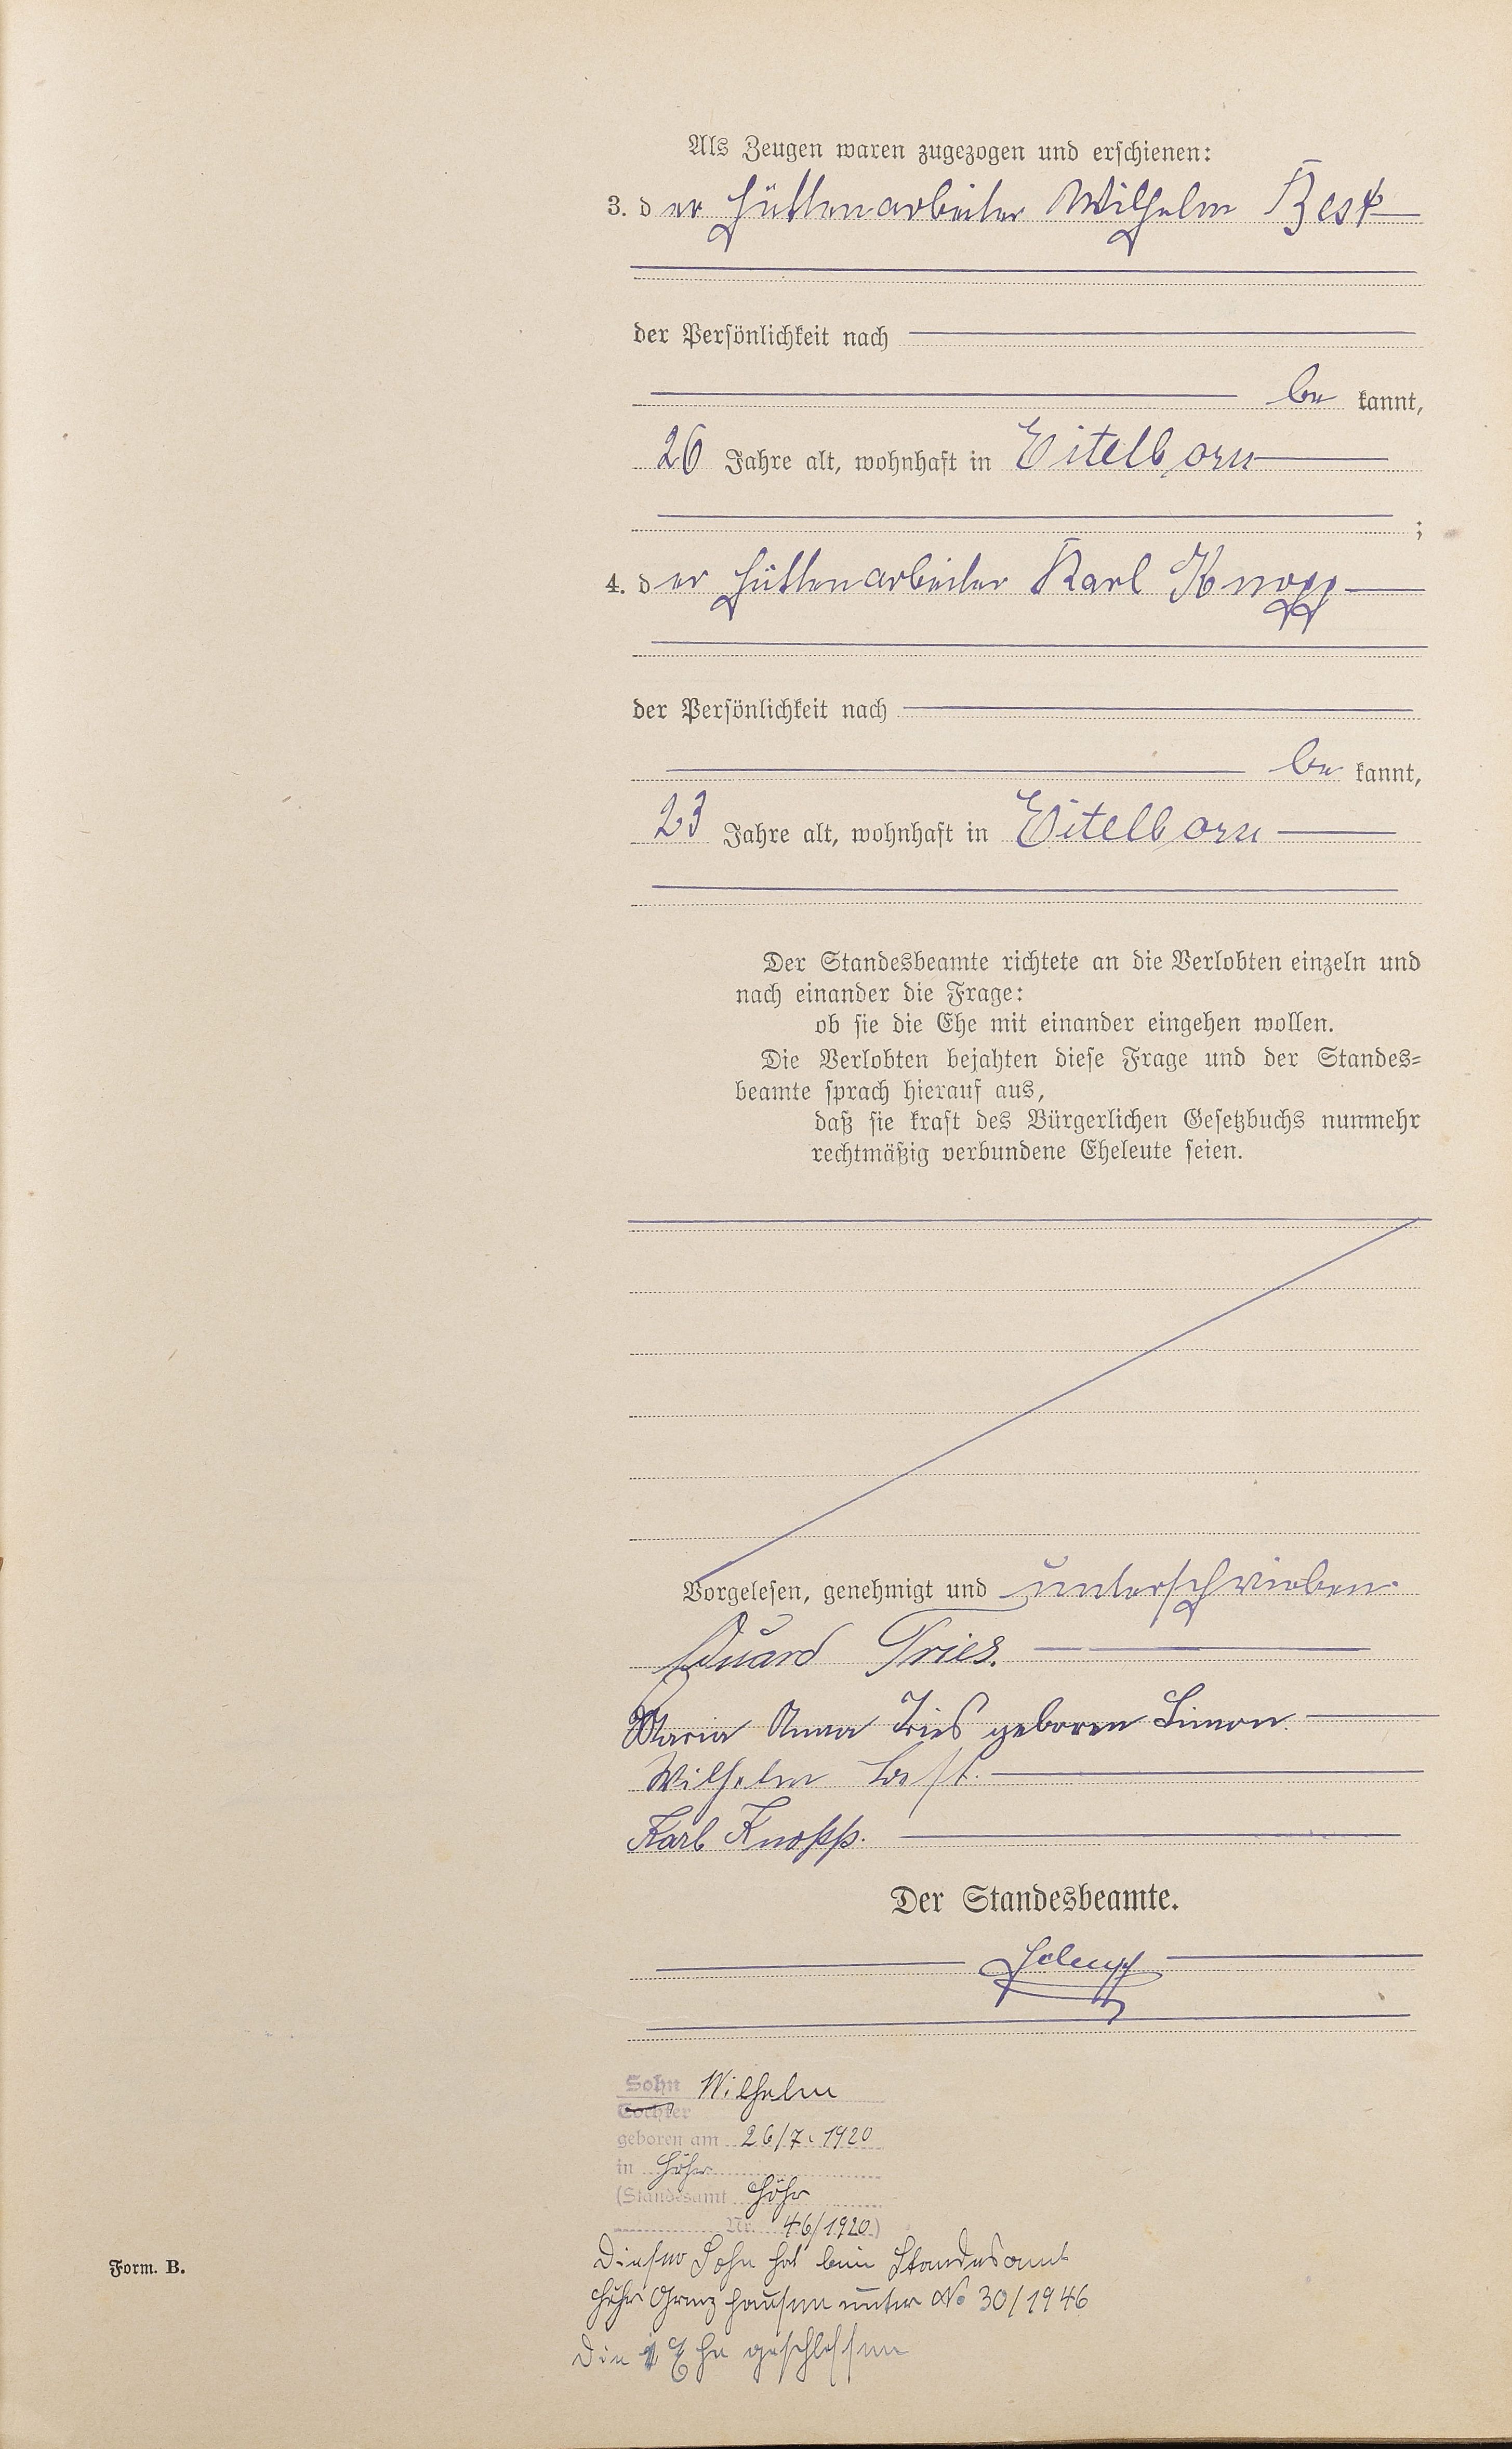 Als Zeugen waren zugezogen und erschienen:
3. der Hüttenarbeiter Wilhelm Best
der Persönlichkeit nach
be kannt,
26 Jahre alt, wohnhaft in Eitelborn
;
4. der Hüttenarbeiter Karl Knopp
der Persönlichkeit nach
be kannt,
23 Jahre alt, wohnhaft in Eitelborn
Der Standesbeamte richtete an die Verlobten einzeln und
nach einander die Frage:
ob sie die Ehe mit einander eingehen wollen.
Die Verlobten bejahten diese Frage und der Standes-
beamte sprach hierauf aus,
daß sie kraft des Bürgerlichen Gesetzbuchs nunmehr
rechtmäßig verbundene Eheleute seien.
Vorgelesen, genehmigt und unterschrieben.
Eduard Fries.
Maria Anna Fries geboren Simon.
Wilhelm Best.
Karl Knopp.
Der Standesbeamte.
Sohn Wilhelm
Tochter
geboren am 26/7. 1920
in Höhr
(Standesamt Höhr
Nr. 46/1920)
Dieser Sohn hat beim Standesamt
Höhr Grenzhausen unter No 30/1946
die Ehe geschlossen
Form. B.